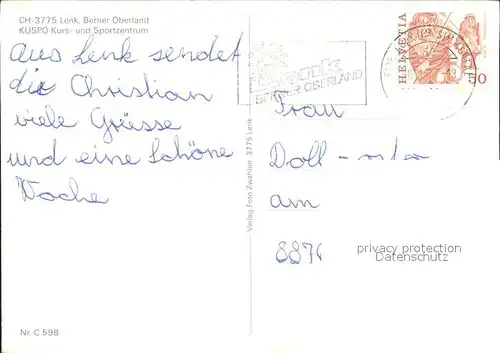 CH-3775 Lenk, Berner Oberland
KUSPO Kurs- und Sportzentrum
aus Lenk sendet
dir Christian
viele Grüsse
und eine schöne
Woche
Nr. C 598
Verlag Foto Zwahlen 3775 Lenk
Lenk
BERNER OBERLAND
HELVETIA
50
Frau
Doll
am
887
privacy protection
Datenschutz